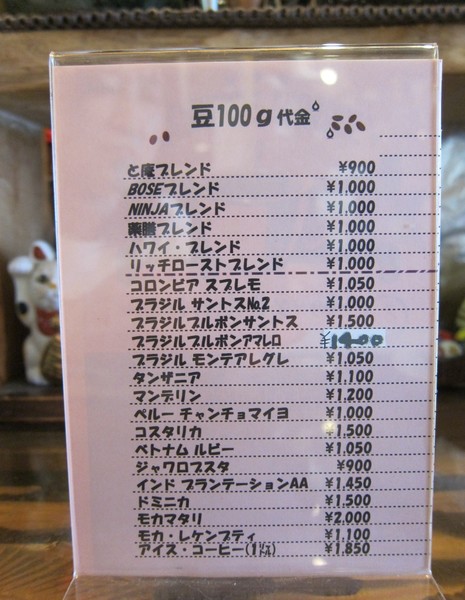 豆100g代金
と庵ブレンド ¥900
BOSEブレンド ¥1,000
NINJAブレンド ¥1,000
薬膳ブレンド ¥1,000
ハワイ・ブレンド ¥1,000
リッチローストブレンド ¥1,000
コロンビア スプレモ ¥1,050
ブラジル サントスNo.2 ¥1,000
ブラジルブルボンサントス ¥1,500
ブラジルブルボンアマレロ ¥1400
ブラジル モンテアレグレ ¥1,050
タンザニア ¥1,100
マンデリン ¥1,200
ペルー チャンチョマイヨ ¥1,000
コスタリカ ¥1,500
ベトナム ルビー ¥1,050
ジャワロブスタ ¥900
インド プランテーションAA ¥1,450
ドミニカ ¥1,500
モカマタリ ¥2,000
モカ・レケンプティ ¥1,100
アイス・コーヒー(1㍑) ¥1,850